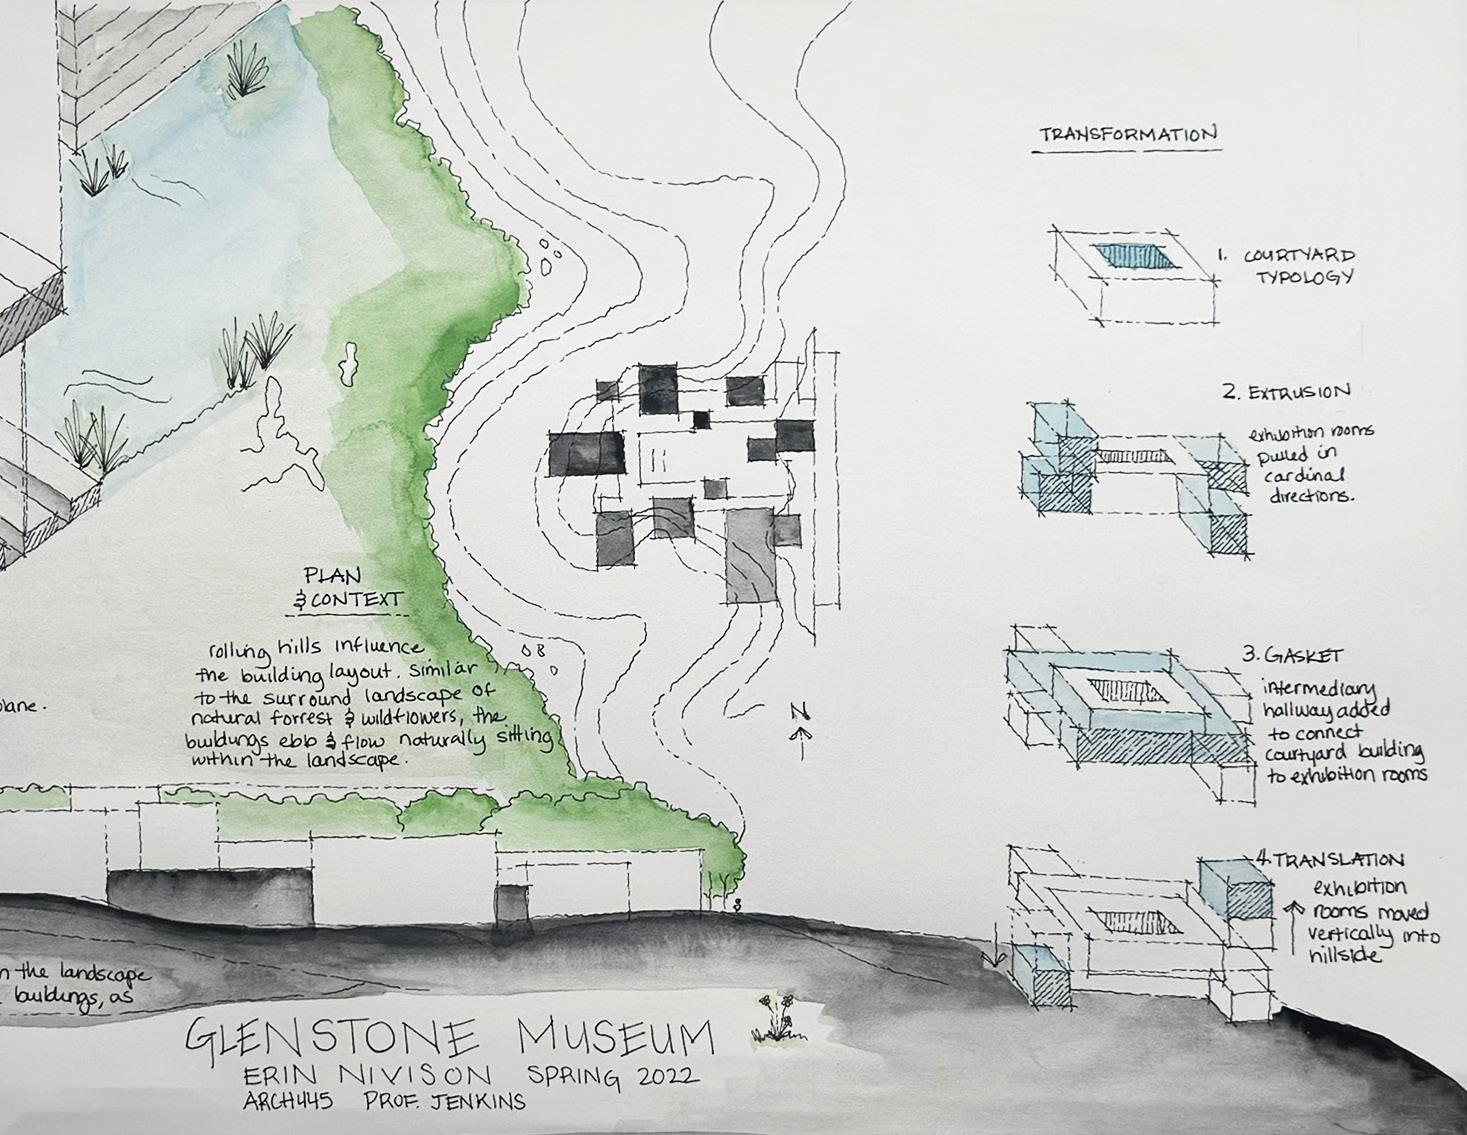 TRANSFORMATION
1. COURTYARD
TYPOLOGY
2. EXTRUSION
exhibition rooms
pulled in
cardinal
directions.
3. GASKET
intermediary
hallway added
to connect
courtyard building
to exhibition rooms
4. TRANSLATION
exhibition
rooms moved
vertically into
hillside
N
PLAN
& CONTEXT
rolling hills influence
the building layout. similar
to the surround landscape of
natural forrest & wildflowers, the
buildings ebb & flow naturally sitting
within the landscape.
plane.
n the landscape
buildings, as
GLENSTONE MUSEUM
ERIN NIVISON SPRING 2022
ARCH445 PROF. JENKINS